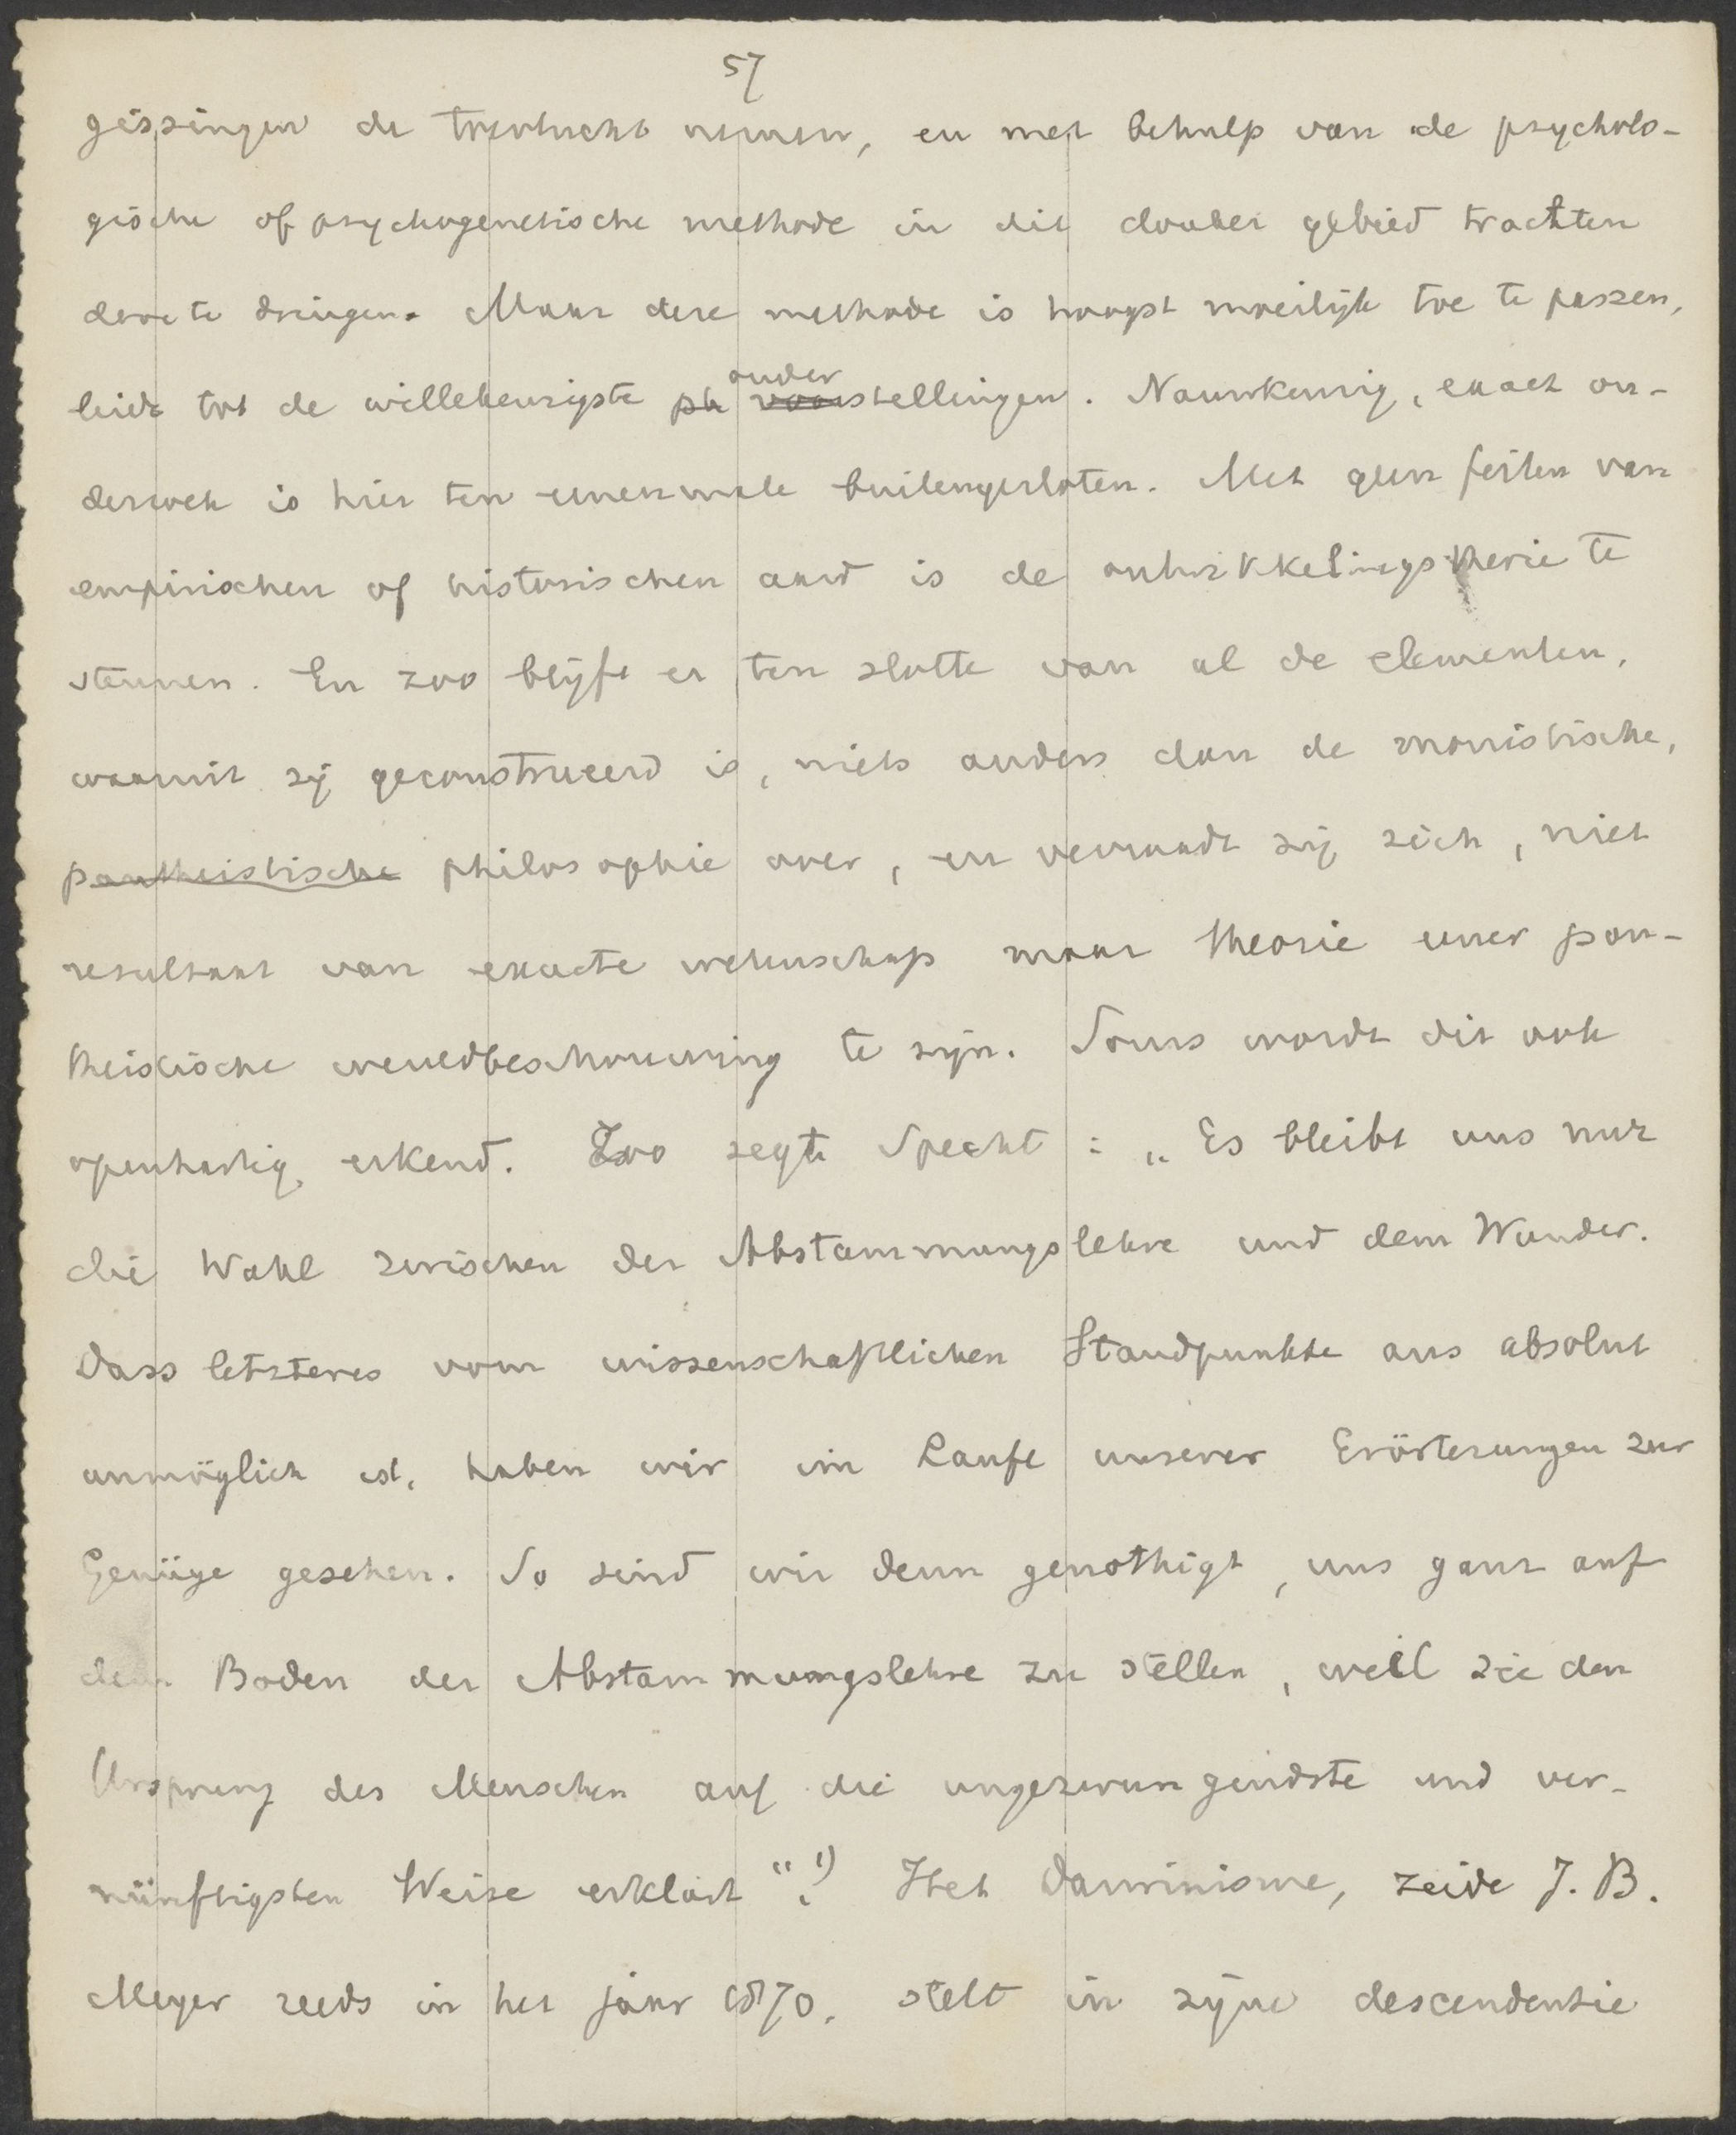 57
gissingen de toevlucht nemen, en met behulp van de psycholo-
gische of psychogenetische methode in dit donker gebied trachten
door te dringen. Maar deze methode is hoogst moeilijk toe te passen,
leidt tot de willekeurigste ph onder
voorstellingen. Nauwkeurig, exact on-
derzoek is hier ten eenenmale buitengesloten. Met geen feiten van
empirischen of historischen aard is de ontwikkelingstheorie te
steunen. En zoo blijft er ten slotte van al de elementen,
waaruit zij geconstrueerd is, niets anders dan de monistische,
pantheistische philosophie over, en verraadt zij zich, niet
resultaat van exacte wetenschap maar theorie eener pan-
theistische wereldbeschouwing te zijn. Soms wordt dit ook
openhartig erkend. Zoo zegt Specht: „Es bleibt uns nur
die Wahl zwischen der Abstammungslehre und dem Wunder.
Dass letzteres vom wissenschaftlichen Standpunkte aus absolut
unmöglich ist, haben wir im Laufe unserer Erörterungen zur
Genüge gesehen. So sind wir denn genothigt, uns ganz auf
den Boden der Abstammungslehre zu stellen, weil sie den
Ursprung des Menschen auf die ungezwungendste und ver-
nünftigsten Weise erklärt“.1) Het Darwinisme, zeide J. B.
Meyer reeds in het jaar 1870, stelt in zijne descendentie